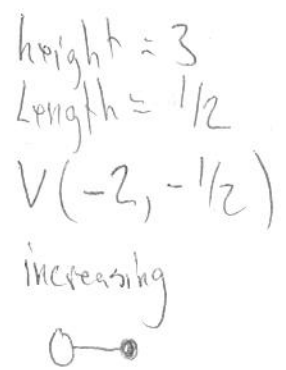 height = 3
Length = 1/2
V(-2, -1/2)
increasing